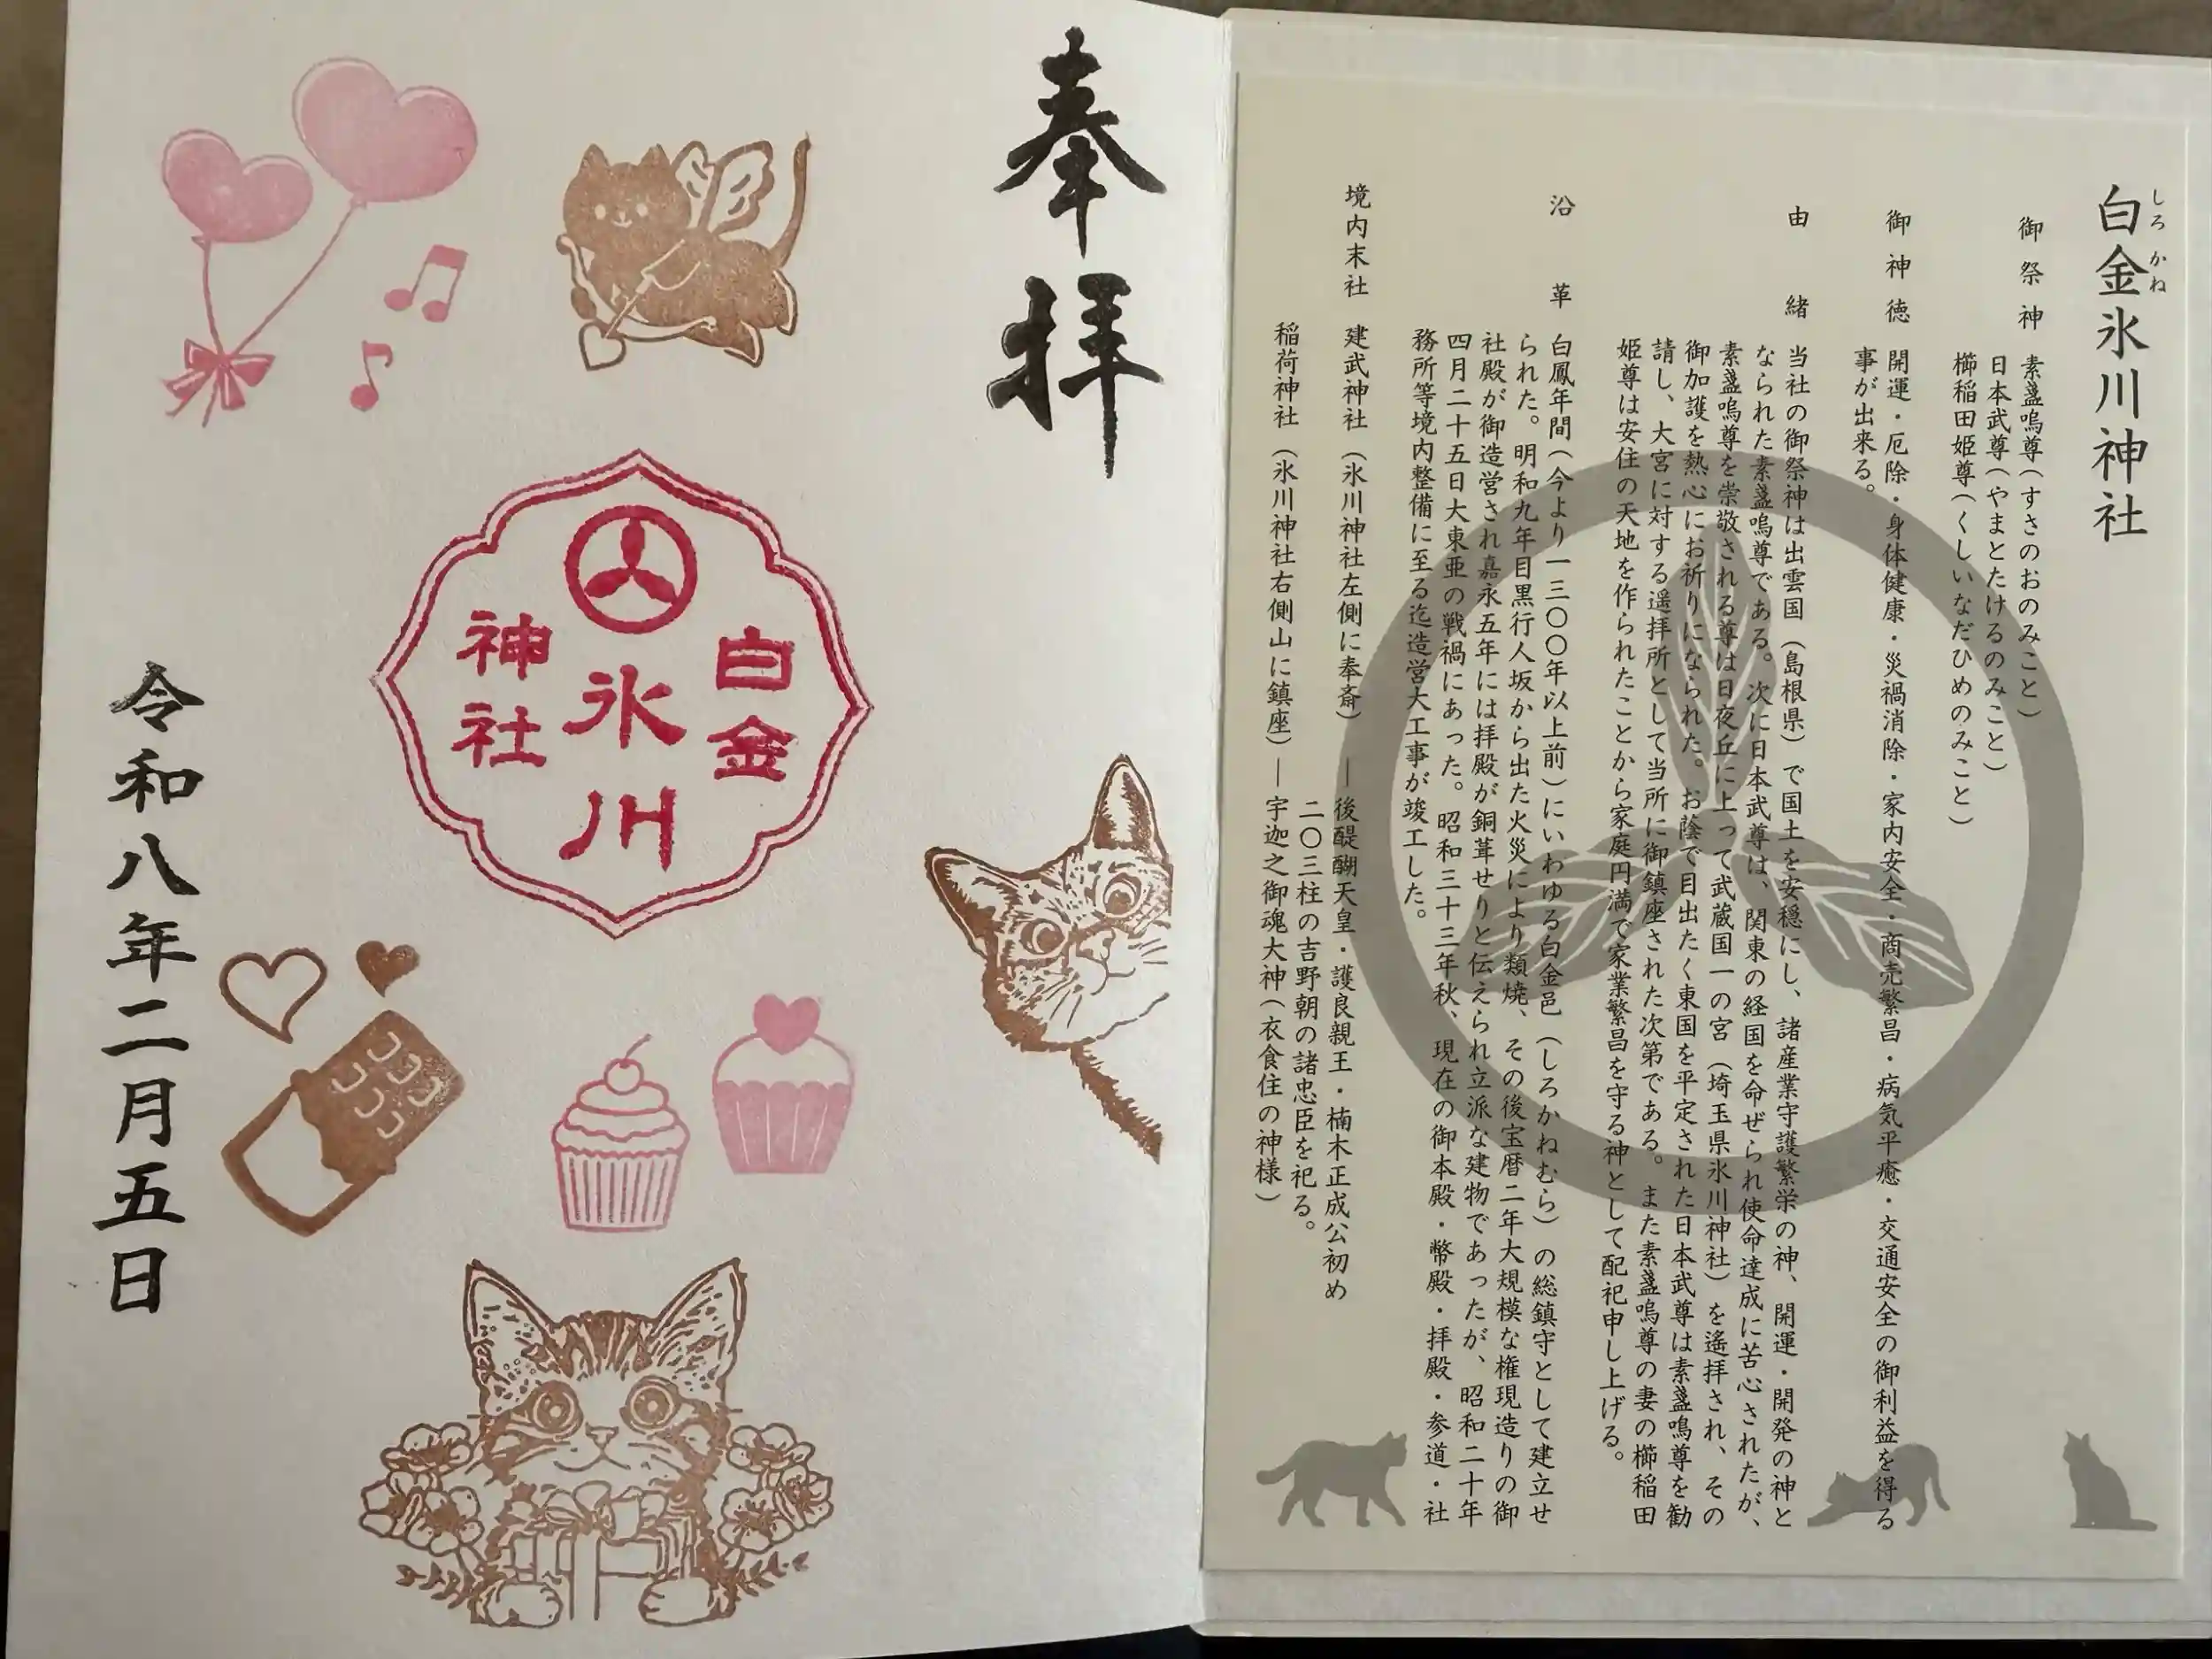 白金氷川神社
しろかね
御祭神 素盞嗚尊(すさのおのみこと)
日本武尊(やまとたけるのみこと)
櫛稲田姫尊(くしいなだひめのみこと)
御神徳 開運・厄除・身体健康・災禍消除・家内安全・商売繁昌・病気平癒・交通安全の御利益を得る
事が出来る。
由緒 当社の御祭神は出雲国(島根県)で国土を安穏にし、諸産業守護繁栄の神、開運・開発の神と
なられた素盞嗚尊である。次に日本武尊は、関東の経国を命ぜられ使命達成に苦心されたが、
素盞嗚尊を崇敬される尊は日夜丘に上って武蔵国一の宮(埼玉県氷川神社)を遙拝され、その
御加護を熱心にお祈りになられた。お蔭で目出たく東国を平定された日本武尊は素盞嗚尊を勧
請し、大宮に対する遥拝所として当所に御鎮座された次第である。また素盞嗚尊の妻の櫛稲田
姫尊は安住の天地を作られたことから家庭円満で家業繁昌を守る神として配祀申し上げる。
沿革 白鳳年間(今より一三〇〇年以上前)にいわゆる白金邑(しろかねむら)の総鎮守として建立せ
られた。明和九年目黒行人坂から出た火災により類焼、その後宝暦二年大規模な権現造りの御
社殿が御造営され嘉永五年には拝殿が銅葺せりと伝えられ立派な建物であったが、昭和二十年
四月二十五日大東亜の戦禍にあった。昭和三十三年秋、現在の御本殿・幣殿・拝殿・参道・社
務所等境内整備に至る迄造営大工事が竣工した。
境内末社 建武神社(氷川神社左側に奉斎)―後醍醐天皇・護良親王・楠木正成公初め
二〇三柱の吉野朝の諸忠臣を祀る。
稲荷神社(氷川神社右側山に鎮座)―宇迦之御魂大神(衣食住の神様)
奉拝
白金
氷川
神社
令和八年二月五日